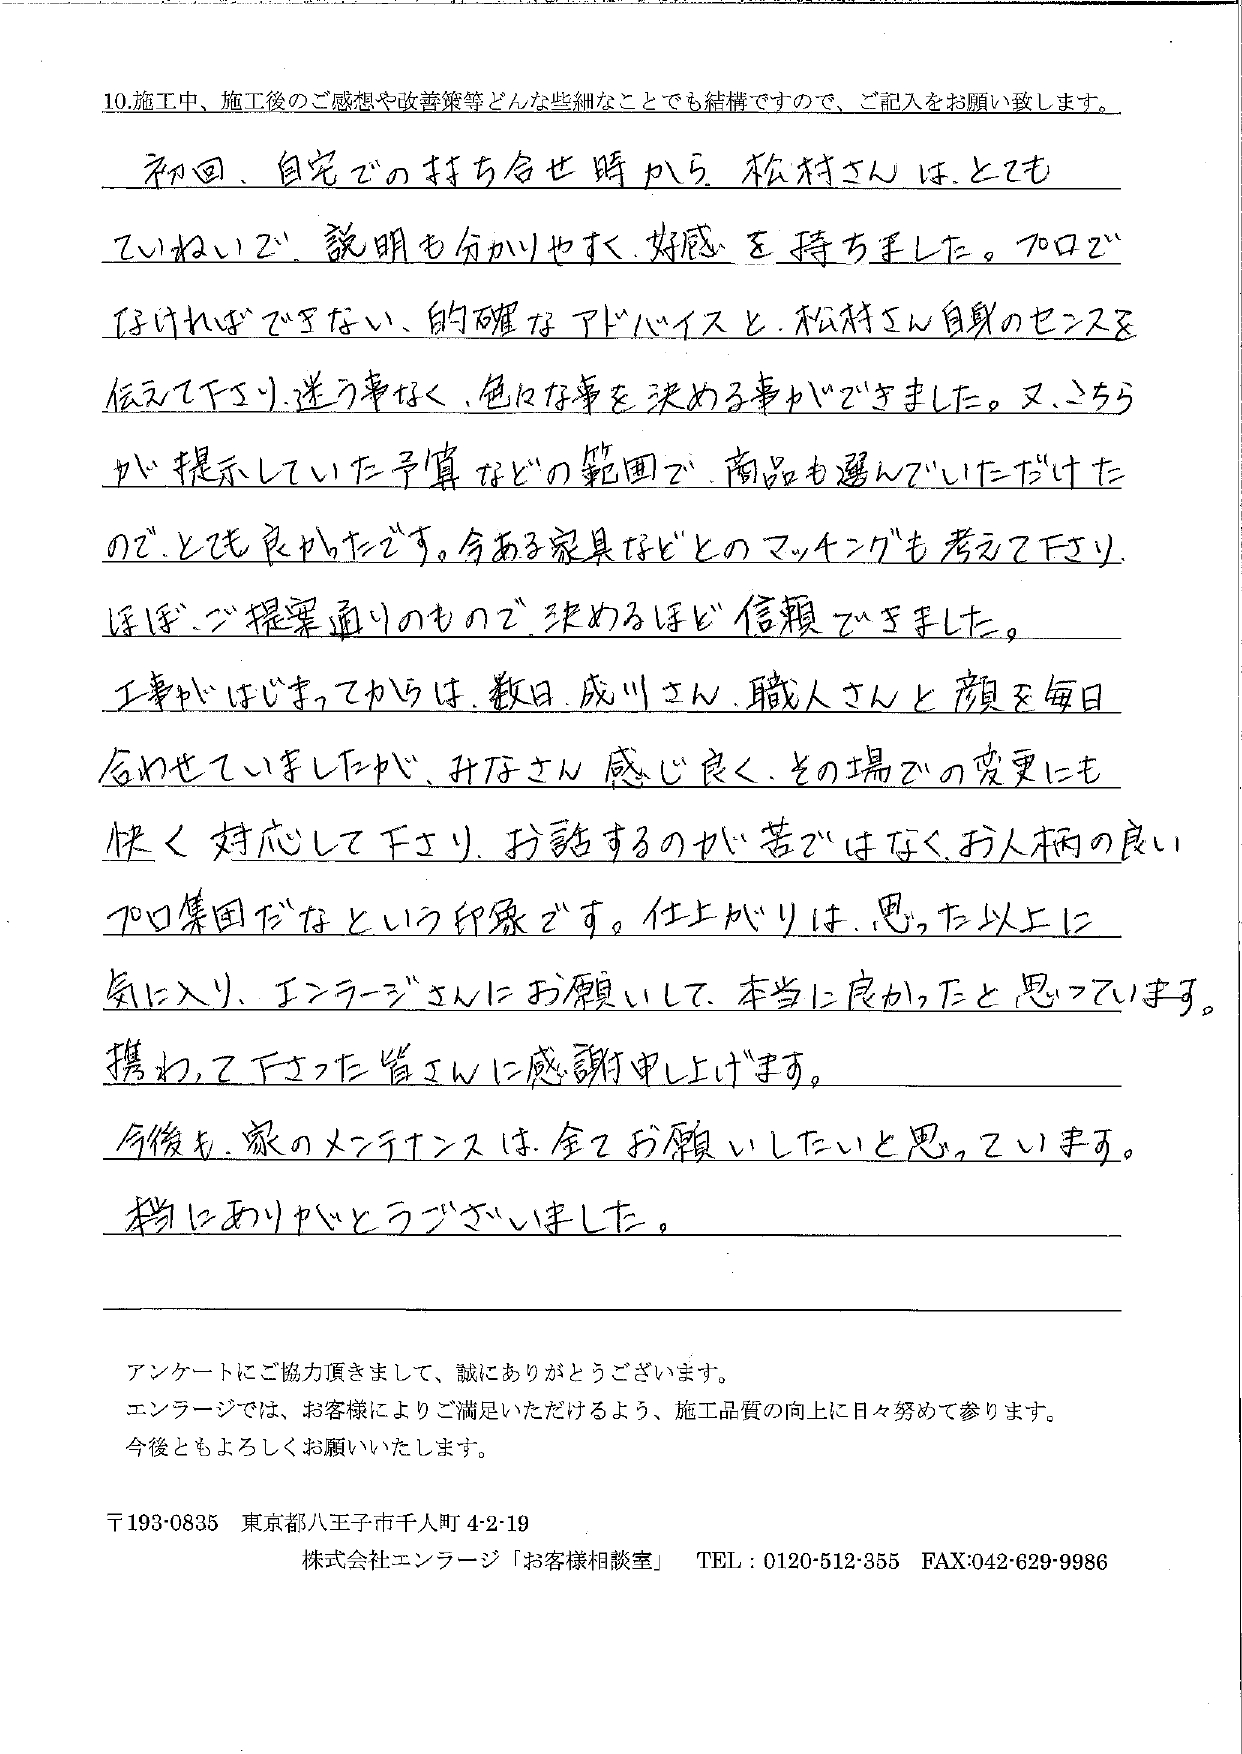 10.施工中、施工後のご感想や改善策等どんな些細なことでも結構ですので、ご記入をお願い致します。
初回、自宅での打ち合せ時から、松村さんは、とても
ていねいで、説明も分かりやすく、好感を持ちました。プロで
なければできない、的確なアドバイスと、松村さん自身のセンスを
伝えて下さり、迷う事なく、色々な事を決める事ができました。又、こちら
が提示していた予算などの範囲で、商品も選んでいただけた
ので、とても良かったです。今ある家具などとのマッチングも考えて下さり、
ほぼ、ご提案通りのもので、決めるほど信頼できました。
工事がはじまってからは、数日、成川さん、職人さんと顔を毎日
合わせていましたが、みなさん感じ良く、その場での変更にも
快く対応して下さり、お話するのが苦ではなく、お人柄の良い
プロ集団だなという印象です。仕上がりは、思った以上に
気に入り、エンラージさんにお願いして、本当に良かったと思っています。
携わって下さった皆さんに感謝申し上げます。
今後も、家のメンテナンスは、全てお願いしたいと思っています。
本当にありがとうございました。
アンケートにご協力頂きまして、誠にありがとうございます。
エンラージでは、お客様によりご満足いただけるよう、施工品質の向上に日々努めて参ります。
今後ともよろしくお願いいたします。
〒193-0835 東京都八王子市千人町 4-2-19
株式会社エンラージ「お客様相談室」 TEL：0120-512-355 FAX:042-629-9986